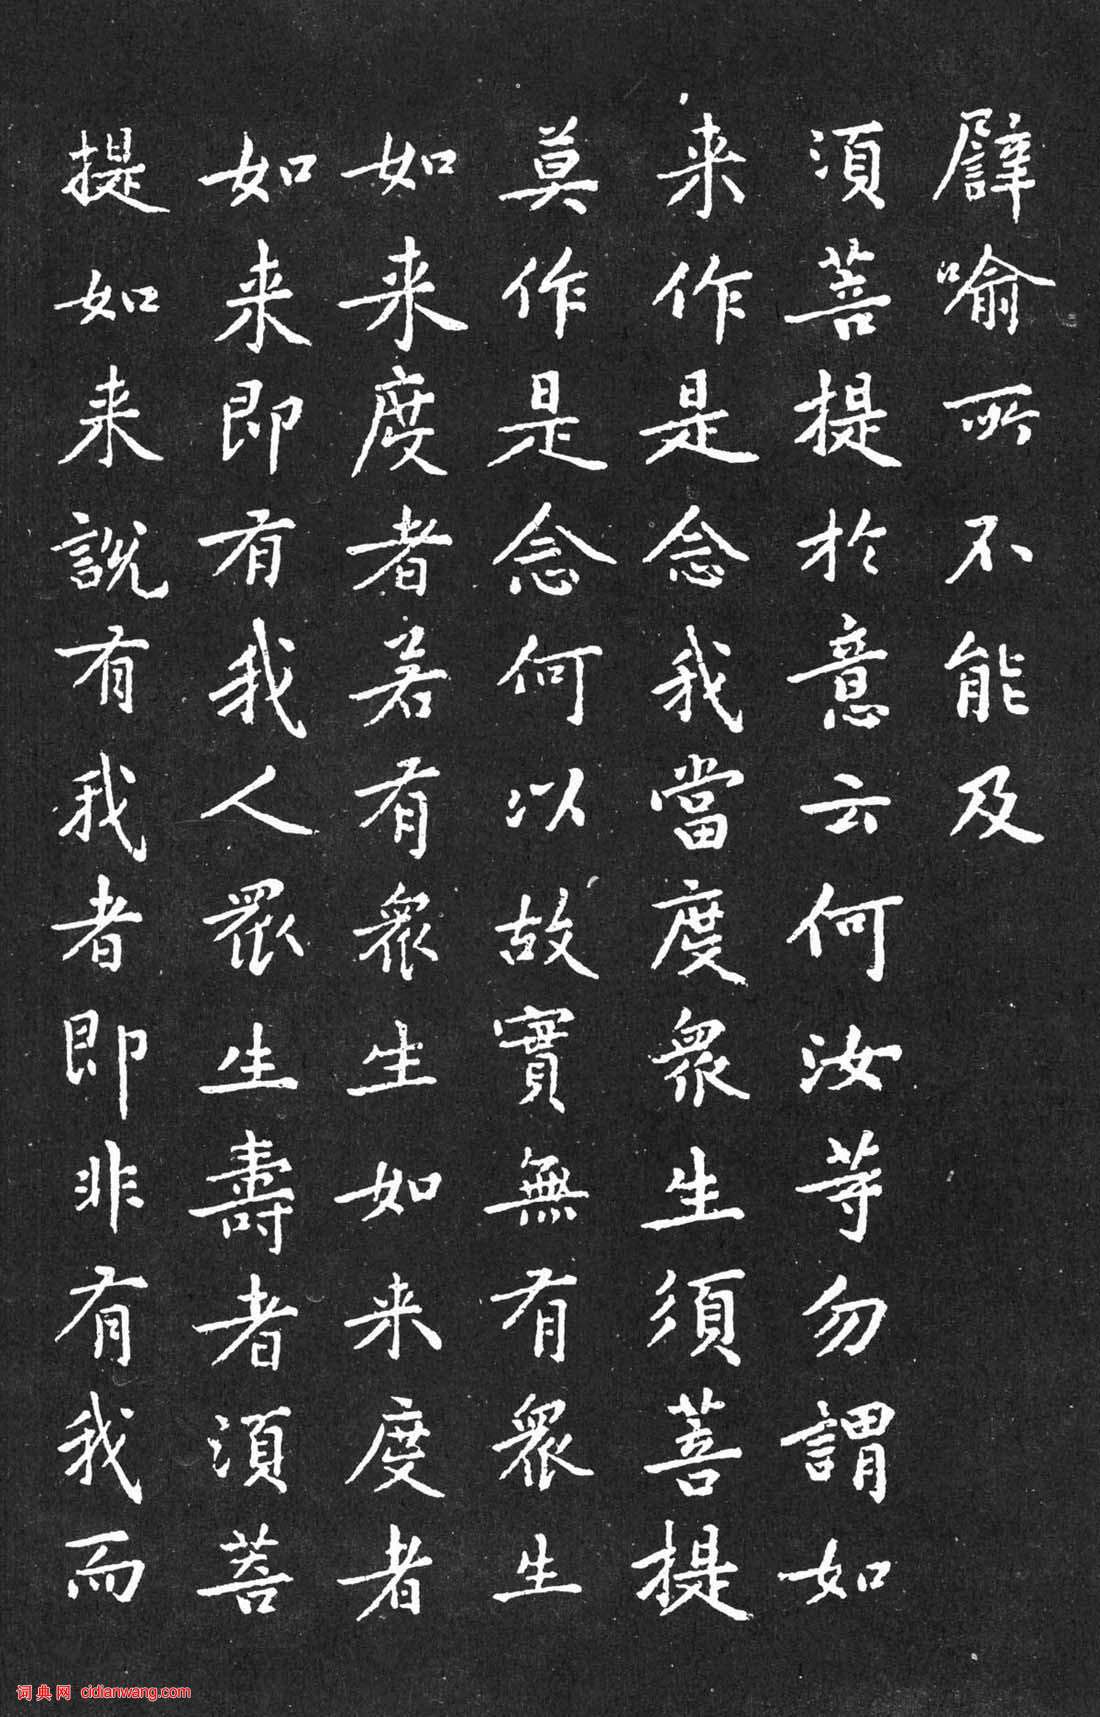 譬喻所不能及
須菩提於意云何汝等勿謂如
来作是念我當度衆生須菩提
莫作是念何以故實無有衆生
如来度者若有衆生如来度者
如来即有我人衆生壽者須菩
提如来說有我者即非有我而
词典网 cidianwang.com